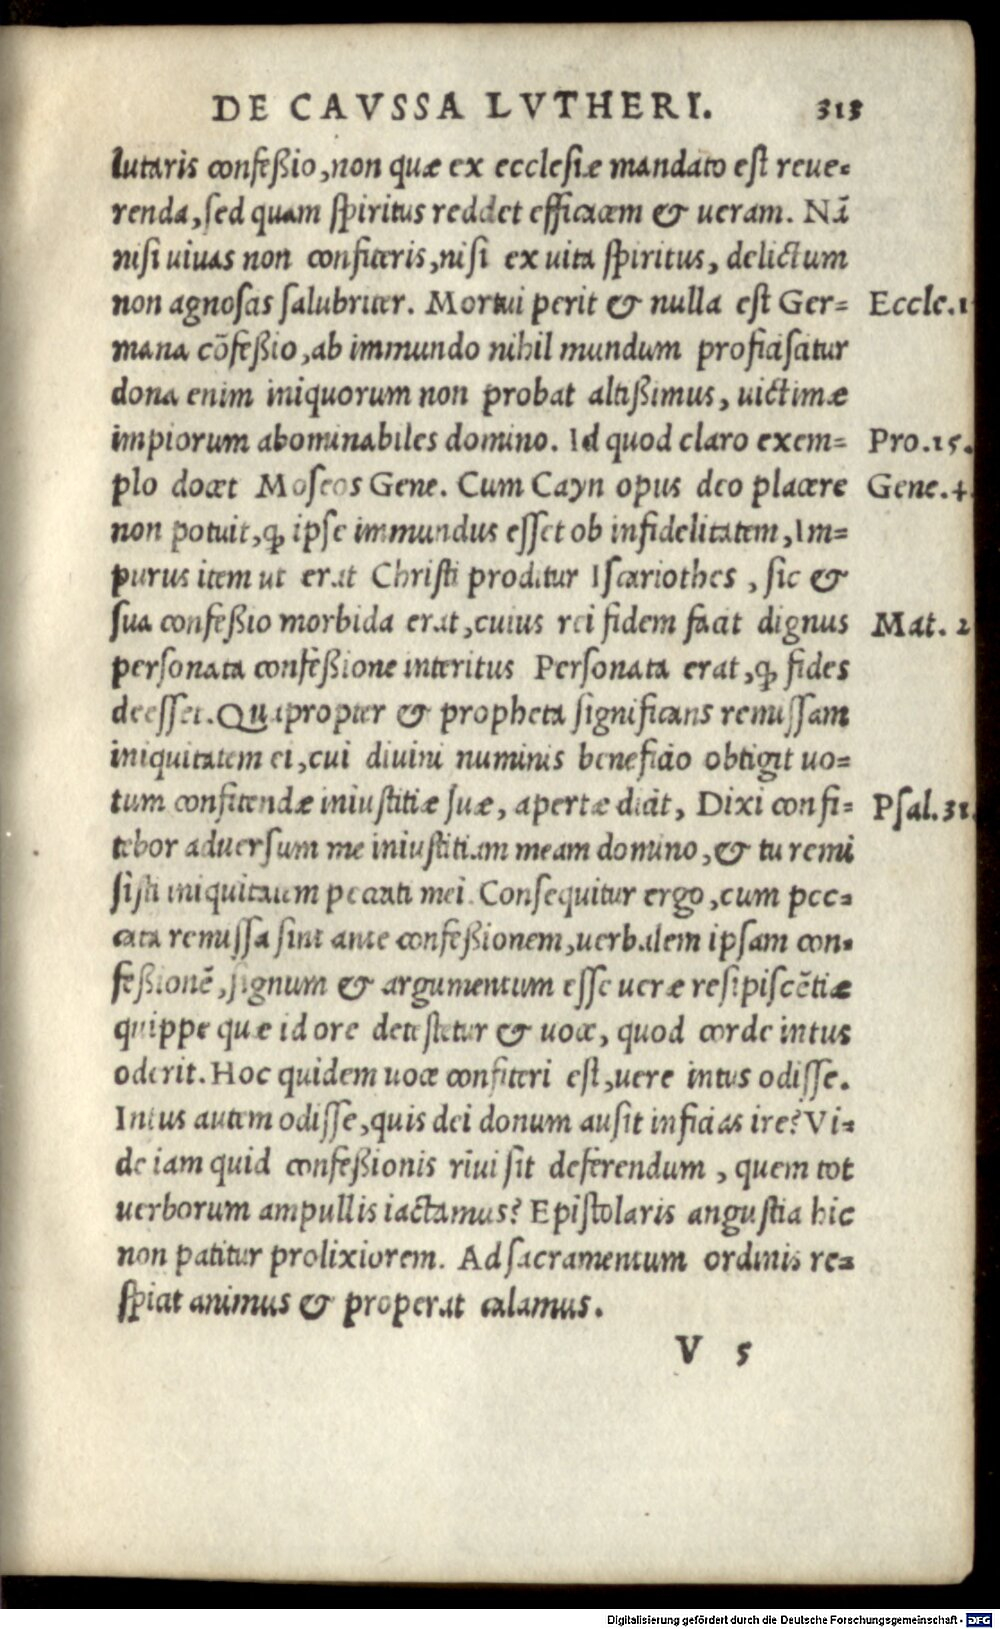 DE CAVSSA LVTHERI. 313
lutaris confeßio, non quæ ex ecclesiæ mandato est reue-
renda, sed quam spiritus reddet efficacem & ueram. Nā
nisi uiuas non confiteris, nisi ex uita spiritus, delictum
non agnoscas salubriter. Mortui perit & nulla est Ger- Eccle.1
mana cōfeßio, ab immundo nihil mundum proficiscitur
dona enim iniquorum non probat altißimus, uictimæ
impiorum abominabiles domino. Id quod claro exem- Pro.15.
plo docet Moseos Gene. Cum Cayn opus deo placere Gene.4.
non potuit, ꝙ ipse immundus esset ob infidelitatem, Im-
purus item ut erat Christi proditur Iscariothes, sic &
sua confeßio morbida erat, cuius rei fidem facit dignus Mat. 2
personata confeßione interitus Personata erat, ꝙ fides
deesset. Quapropter & propheta significans remissam
iniquitatem ei, cui diuini numinis beneficio obtigit uo-
tum confitendæ iniustitiæ suæ, apertæ dicit, Dixi confi- Psal.31.
tebor aduersum me iniustitiam meam domino, & tu remi
sisti iniquitatem peccati mei. Consequitur ergo, cum pec-
cata remissa sint ante confeßionem, uerbalem ipsam con-
feßionē, signum & argumentum esse ueræ resipiscētiæ
quippe quæ id ore detestetur & uoce, quod corde intus
oderit. Hoc quidem uoce confiteri est, uere intus odisse.
Intus autem odisse, quis dei donum ausit inficias ire? Vi-
de iam quid confeßionis riui sit deferendum, quem tot
uerborum ampullis iactamus? Epistolaris angustia hic
non patitur prolixiorem. Ad sacramentum ordinis re-
spicit animus & properat calamus.
V 5
Digitalisierung gefördert durch die Deutsche Forschungsgemeinschaft - DFG